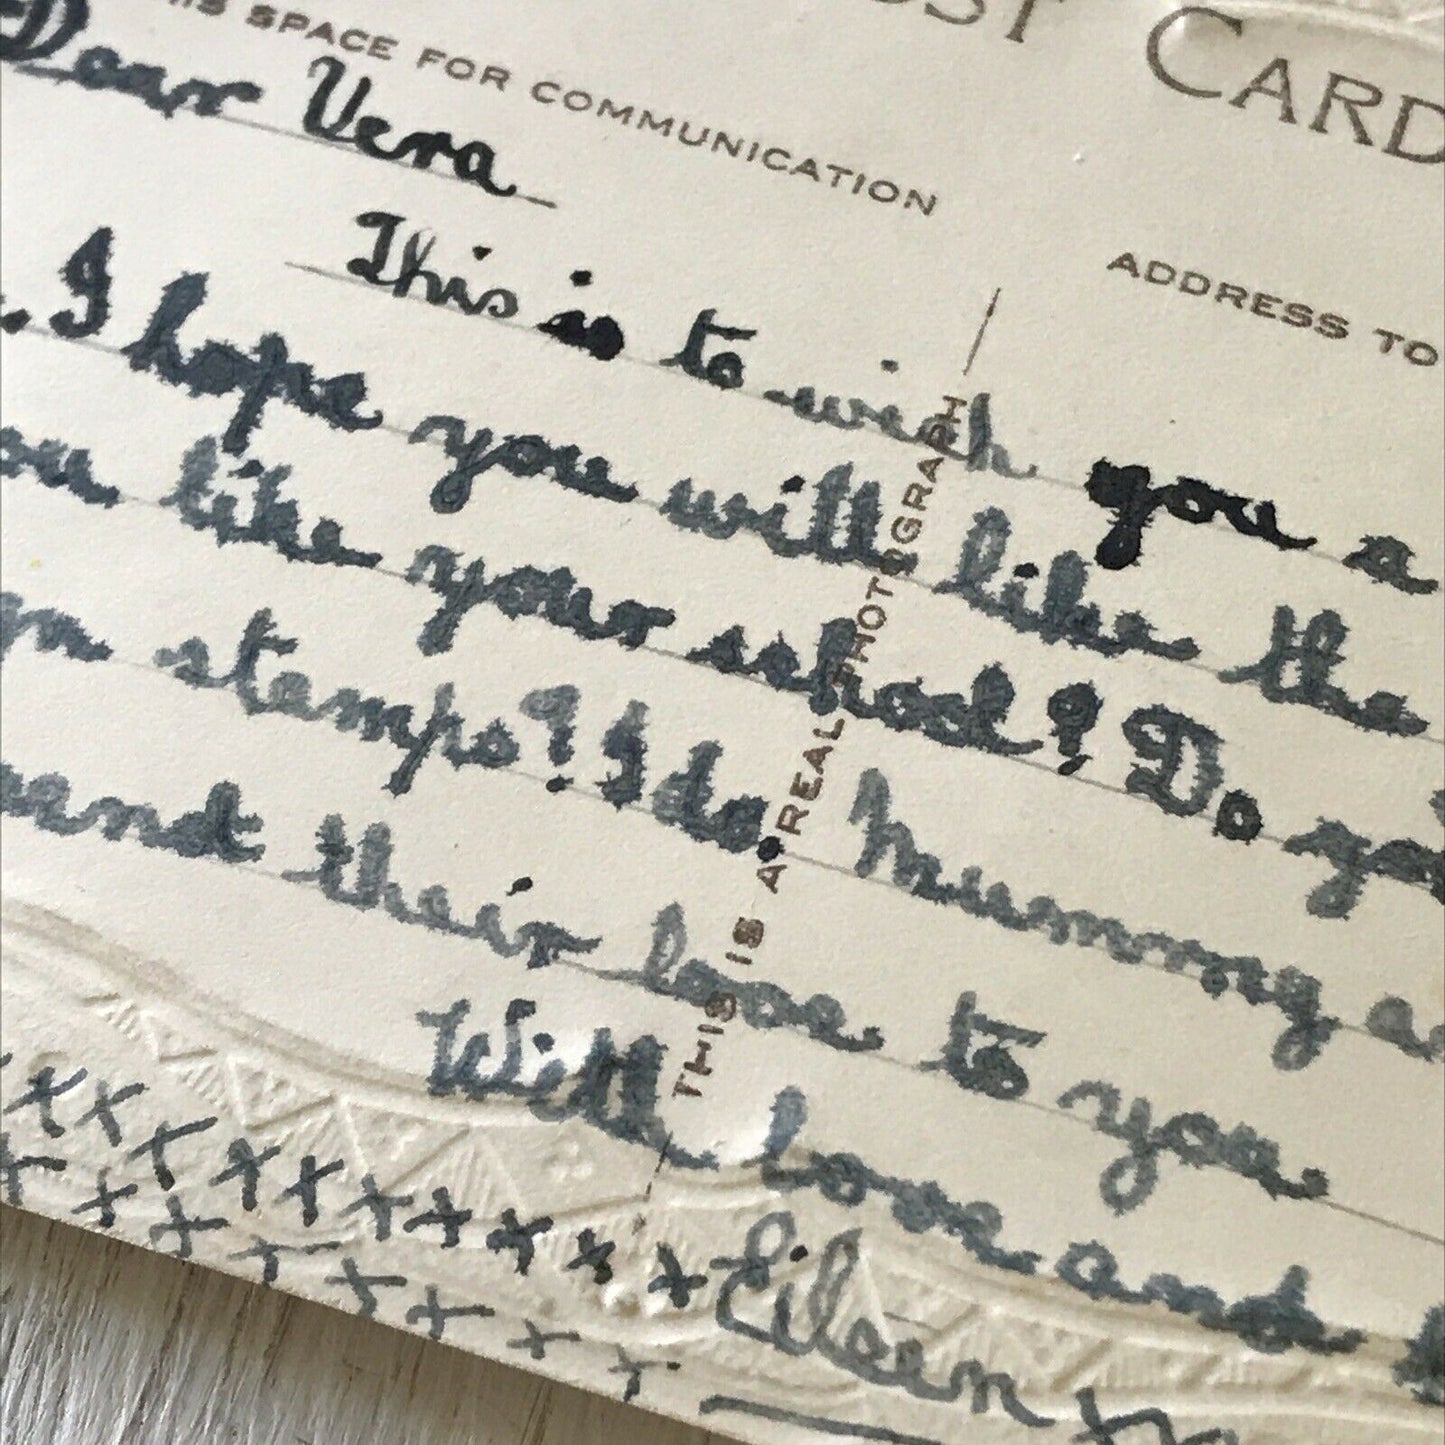 POST CARD
THIS SPACE FOR COMMUNICATION
ADDRESS TO
Dear Vera
This is to wish you a
. I hope you will like the
like your school? Do
stamps? I do. Mummy
their love to you.
With love and
Eileen
xxxxxxxxxxx
xxxxxxxxx
THIS IS A REAL PHOTOGRAPH